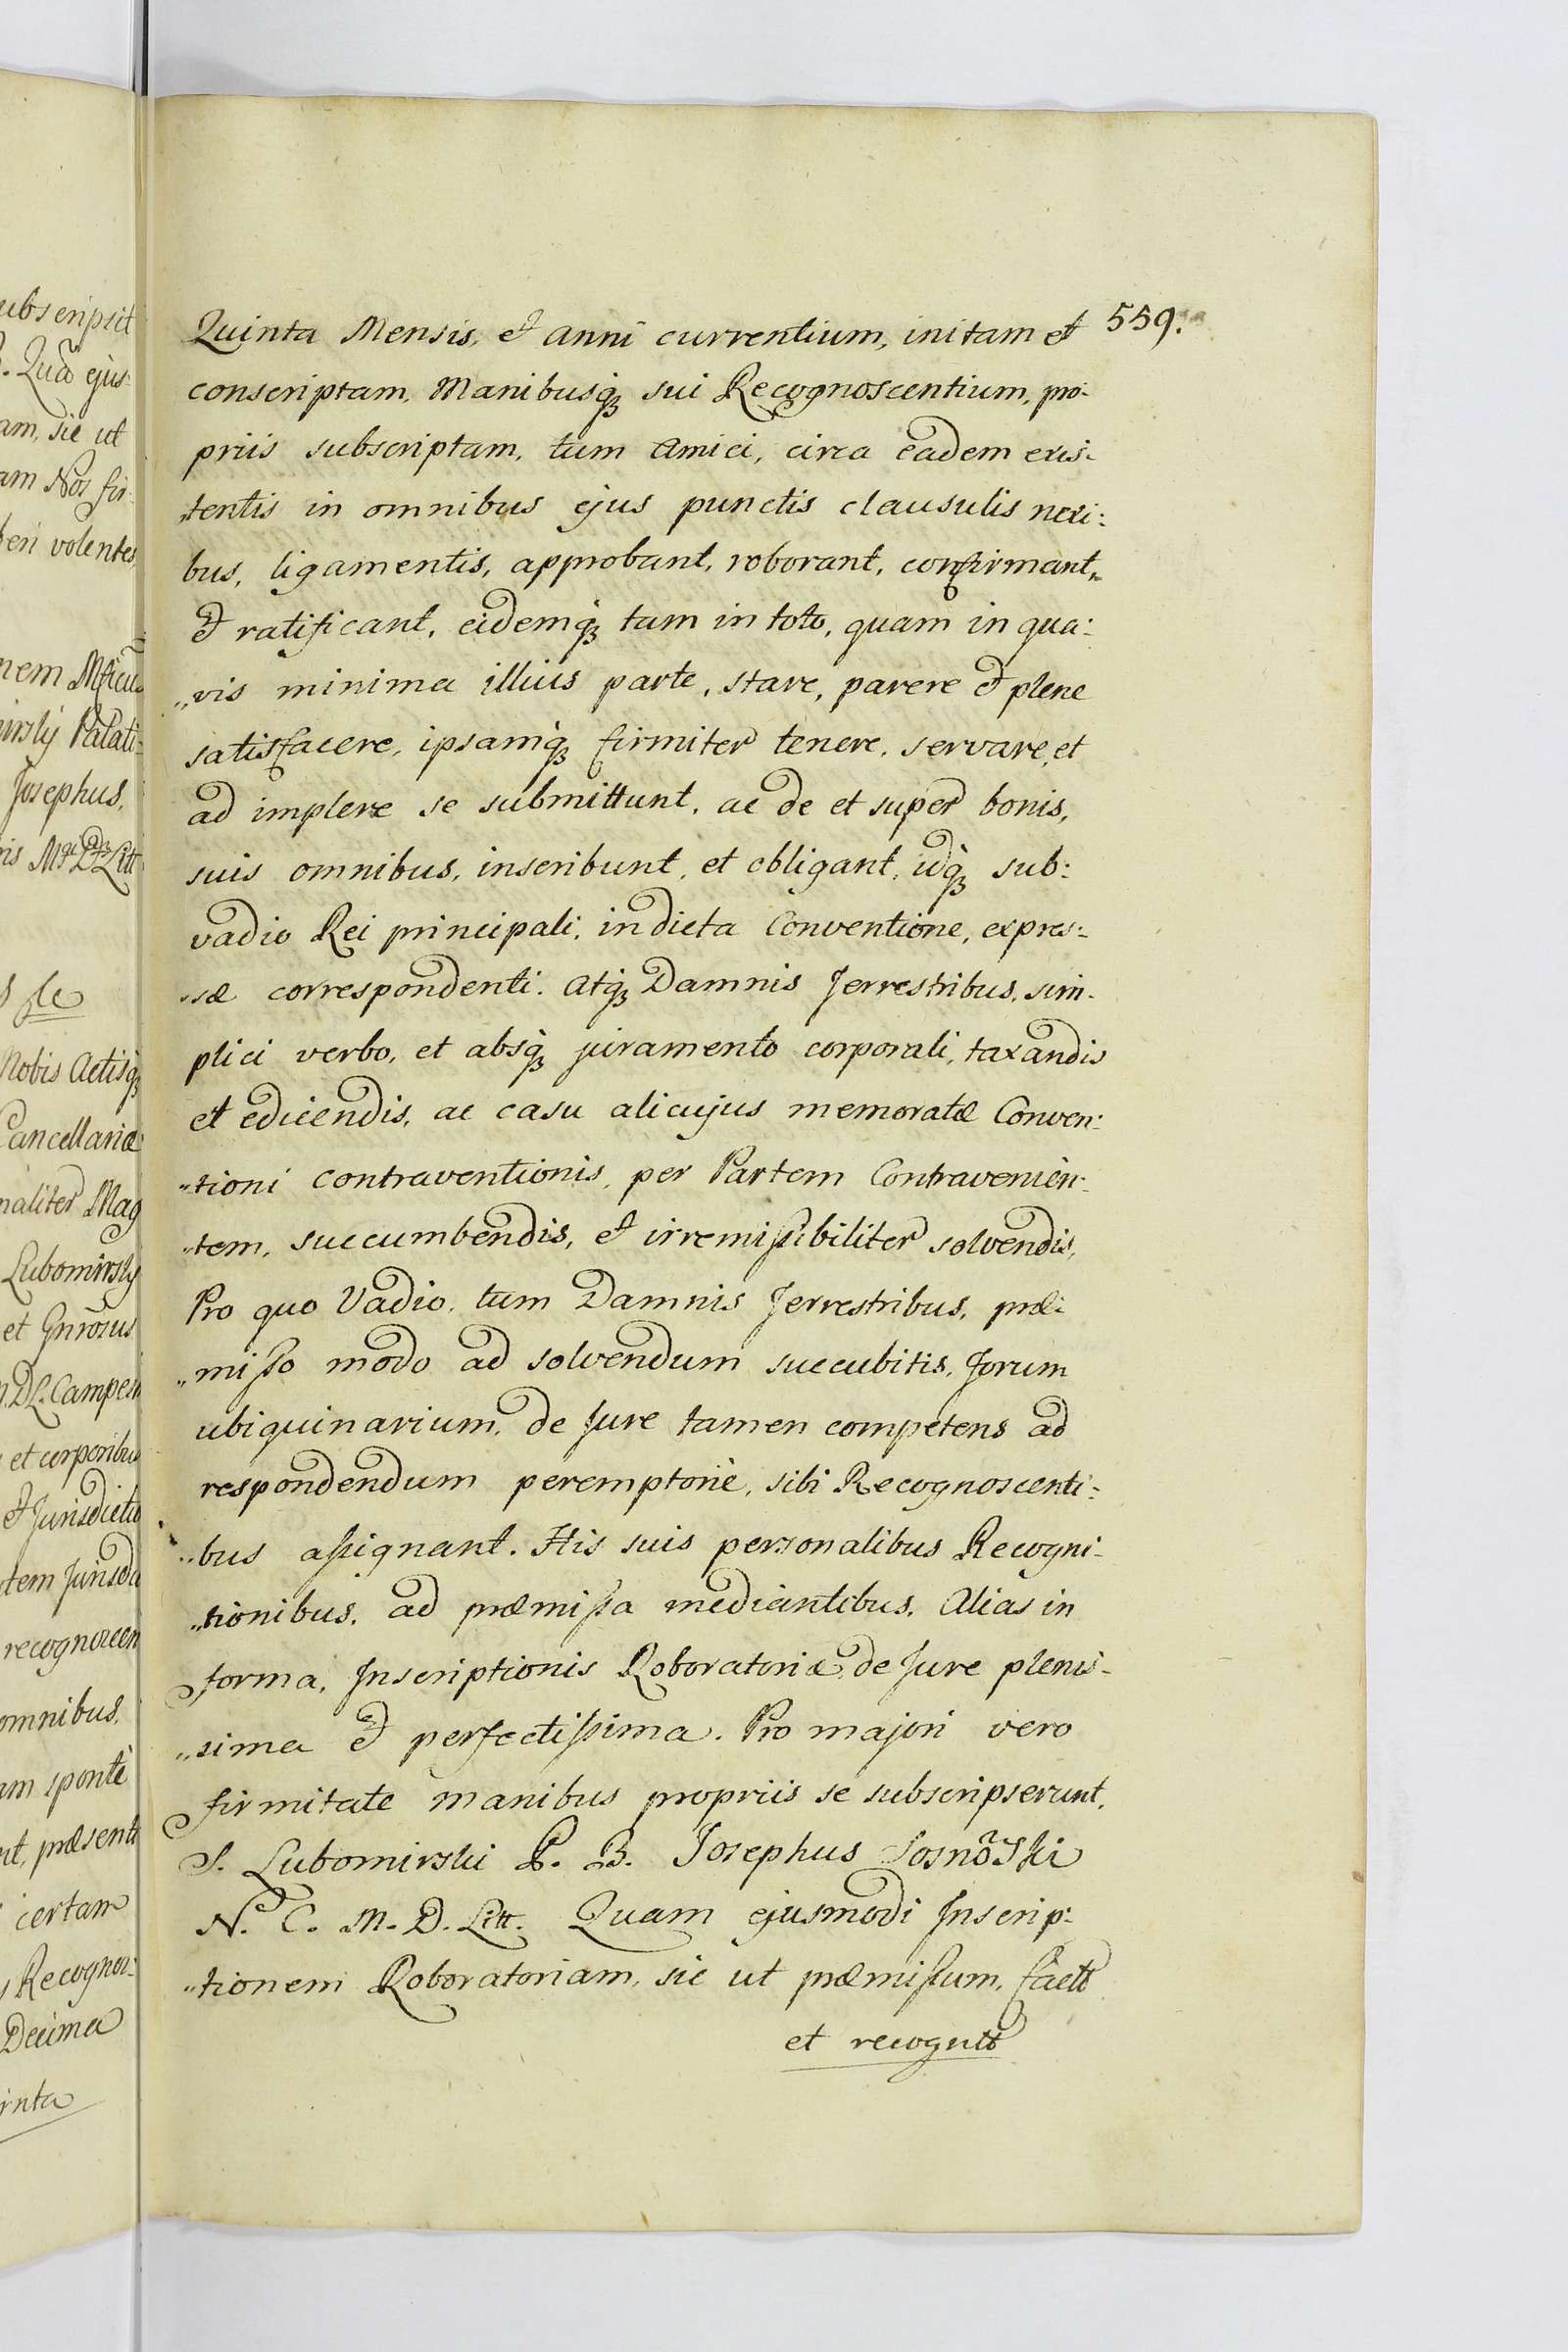 559.
Quinta Mensis, et anni currentium, initam et
conscriptam, Manibusq; sui Recognoscentium, pro:
priis subscriptam, tum Amici, circa eadem exis:
„tentis in omnibus ejus punctis clausulis nexi:
bus, ligamentis, approbant, roborant, confirmant,
et ratificant, eidemq; tam in toto, quam in qua:
„vis minima illius parte, stare, parere et plene
satisfacere, ipsamq; firmiter tenere, servare, et
ad implere se submittunt, ac de et super bonis,
suis omnibus, inscribunt, et obligant, idq; sub:
vadio Rei principali, in dicta Conventione, expres:
„sæ correspondenti. Atq; Damnis Terrestribus, sim:
plici verbo, et absq; juramento corporali, taxandis
et edicendis, ac casu alicujus memoratæ Conven:
„tioni contraventionis, per Partem Contravenien:
„tem, succumbendis, et irremissibiliter solvendis,
Pro quo Vadio, tum Damnis Terrestribus, præ:
„misso modo ad solvendum succubitis, Forum
ubiquinarium, de Jure tamen competens ad
respondendum peremptoriè, sibi Recognoscenti:
„bus assignant. His suis personalibus Recogni:
„tionibus, ad præmissa mediantibus, Alias in
forma, Inscriptionis Roboratoriæ, de Jure plenis:
„sima et perfectissima. Pro majori vero
firmitate manibus propriis se subscripserunt.
S. Lubomirski P. B. Josephus Sosnõski
N. C. M. D. Litt. Quam ejusmodi Inscrip:
„tionem Roboratoriam, sic ut præmissum, factã
et recognitã
ubscripsit
ejus:
am, sic ut
am Nos fir:
beri volentes
Palati:
Josephus,
Nobis Actisq;
Cancellariæ
naliter Mag
Lubomirsky
et Gnrosus
Campest
et corporibus
et Jurisdictio
recognoscen
omnibus,
am spontè
præsent
certam
Recognos:
Decima
inta